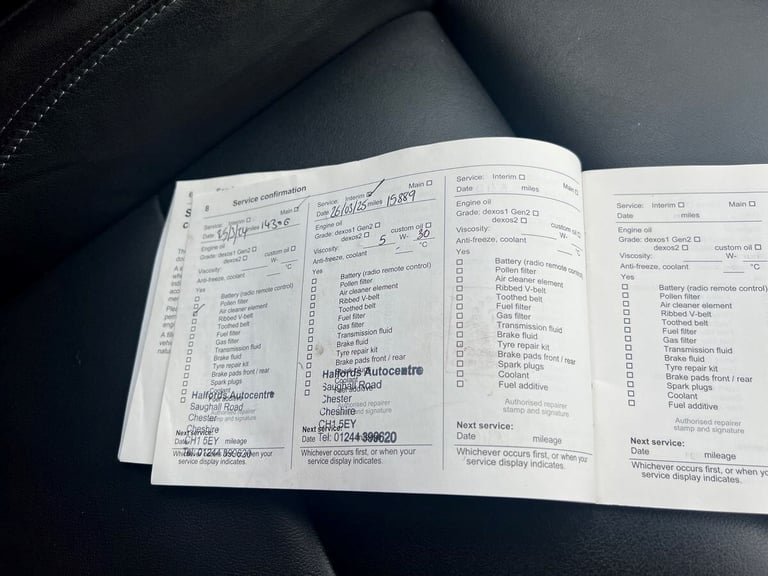 8 Service confirmation
Service: Interim Main
Date 25/3/24 miles
Engine oil
Grade: dexos1 Gen2
dexos2 custom oil
Viscosity: W-
Anti-freeze, coolant °C
Yes
Battery (radio remote control)
Pollen filter
Air cleaner element
Ribbed V-belt
Toothed belt
Fuel filter
Gas filter
Transmission fluid
Brake fluid
Tyre repair kit
Brake pads front / rear
Spark plugs
Coolant
Fuel additive
Halfords Autocentre
Saughall Road
Chester
Cheshire
CH1 5EY
Tel: 01244 399620
Authorised repairer
stamp and signature
Next service:
Date mileage
Whichever occurs first, or when your
service display indicates.
Service: Interim Main
Date 26/03/25 miles 15889
Engine oil
Grade: dexos1 Gen2
dexos2 custom oil
Viscosity: 5 W- 30
Anti-freeze, coolant °C
Yes
Battery (radio remote control)
Pollen filter
Air cleaner element
Ribbed V-belt
Toothed belt
Fuel filter
Gas filter
Transmission fluid
Brake fluid
Tyre repair kit
Brake pads front / rear
Halfords Autocentre
Saughall Road
Chester
Cheshire
CH1 5EY
Tel: 01244 399620
Authorised repairer
stamp and signature
Next service:
Date
Whichever occurs first, or when your
service display indicates.
Service: Interim Main
Date miles
Engine oil
Grade: dexos1 Gen2
dexos2 custom oil
Viscosity: W-
Anti-freeze, coolant °C
Yes
Battery (radio remote control)
Pollen filter
Air cleaner element
Ribbed V-belt
Toothed belt
Fuel filter
Gas filter
Transmission fluid
Brake fluid
Tyre repair kit
Brake pads front / rear
Spark plugs
Coolant
Fuel additive
Authorised repairer
stamp and signature
Next service:
Date mileage
Whichever occurs first, or when your
service display indicates.
Service: Interim Main
Date miles
Engine oil
Grade: dexos1 Gen2
dexos2 custom oil
Viscosity: W-
Anti-freeze, coolant °C
Yes
Battery (radio remote control)
Pollen filter
Air cleaner element
Ribbed V-belt
Toothed belt
Fuel filter
Gas filter
Transmission fluid
Brake fluid
Tyre repair kit
Brake pads front / rear
Spark plugs
Coolant
Fuel additive
Authorised repairer
stamp and signature
Next service:
Date mileage
Whichever occurs first, or when yo
service display indicates.